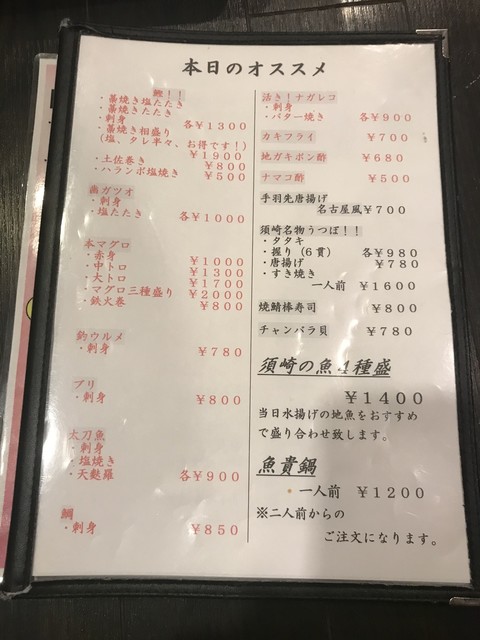 本日のオススメ
鰹！！
・藁焼き塩たたき
・藁焼きたたき
・刺身 各￥1300
・藁焼き相盛り
（塩、タレ半々、お得です！）
￥1900
・土佐巻き ￥800
・ハランボ塩焼き ￥500
歯ガツオ
・刺身
・塩たたき 各￥1000
本マグロ
・赤身 ￥1000
・中トロ ￥1300
・大トロ ￥1700
・マグロ三種盛り ￥2000
・鉄火巻 ￥800
釣ウルメ
・刺身 ￥780
ブリ
・刺身 ￥800
太刀魚
・刺身
・塩焼き
・天麩羅 各￥900
鯛
・刺身 ￥850
活き！ナガレコ
・刺身
・バター焼き 各￥900
カキフライ ￥700
地ガキポン酢 ￥680
ナマコ酢 ￥500
手羽先唐揚げ
名古屋風￥700
須崎名物うつぼ！！
・タタキ
・握り（6貫） 各￥980
・唐揚げ ￥780
・すき焼き
一人前 ￥1600
焼鯖棒寿司 ￥800
チャンバラ貝 ￥780
須崎の魚4種盛
￥1400
当日水揚げの地魚をおすすめ
で盛り合わせ致します。
魚貴鍋
・一人前 ￥1200
※二人前からの
ご注文になります。